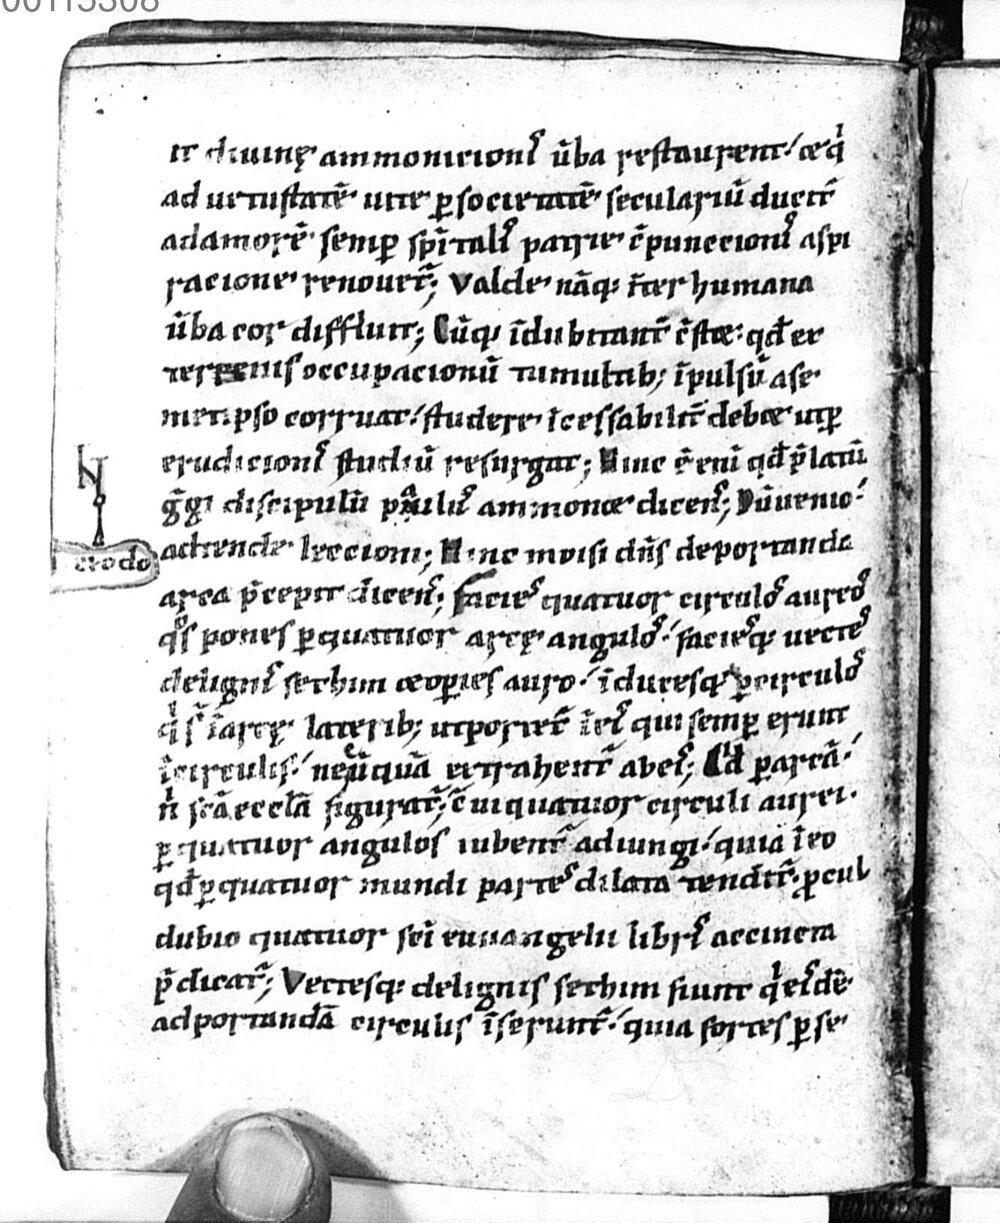 00115308
it diuinę ammonicionis u̅ba restaurent / & qͥ
ad uetustate̅ uite ꝑ societate̅ seculariu̅ ducit̅
ad amore̅ semꝑ sp̅italis patrie c̅punccionis aspi
racione renouet̅; Valde na̅q; int̅ humana
u̅ba cor diffluit; Cu̅q; i̅dubitant̅ c̅st&; qd̅ ex
ternis occupacionu̅ tumultib; i̅pulsu̅ a se
met ipso corruat / studere i̅cessabilit̅ deb& ut ꝑ
erudicionis studiu̅ resurgat; Hinc e̅ eni̅ qd̅ p̅latu̅
g̅gi discipulu̅ paulus ammon& dicens; Du̅ uenio
adtende leccioni; Hinc moisi dn̅s de portanda
exodo
arca p̅cepit dicens; Facies quatuor circulos aureos
qͦs pones ꝑ quatuor arcę angulos / faciesq; uectes
de lignis sethim & oꝑies auro / i̅ducesq; ꝑ circulos
qͥ s̅ i̅ arcę laterib; ut portet̅ i̅ eis qui semꝑ erunt
i̅ circulis / ne u̅qua̅ extrahent̅ ab eis; Qͥd ꝑ arca̅
n̅ sc̅a eccl̅a figurat̅; cui quatuor circuli aurei
ꝑ quatuor angulos iubent̅ adiungi / quia i̅ eo
qd̅ ꝑ quatuor mundi partes dilata tendit̅ ꝓcul
dubio quatuor sc̅i euuangelii libris accincta
p̅dicat̅; Vectesq; de lignis sethim fiunt qͥ eisde̅
ad portanda̅ circulis i̅serunt̅ / quia fortes ꝑse